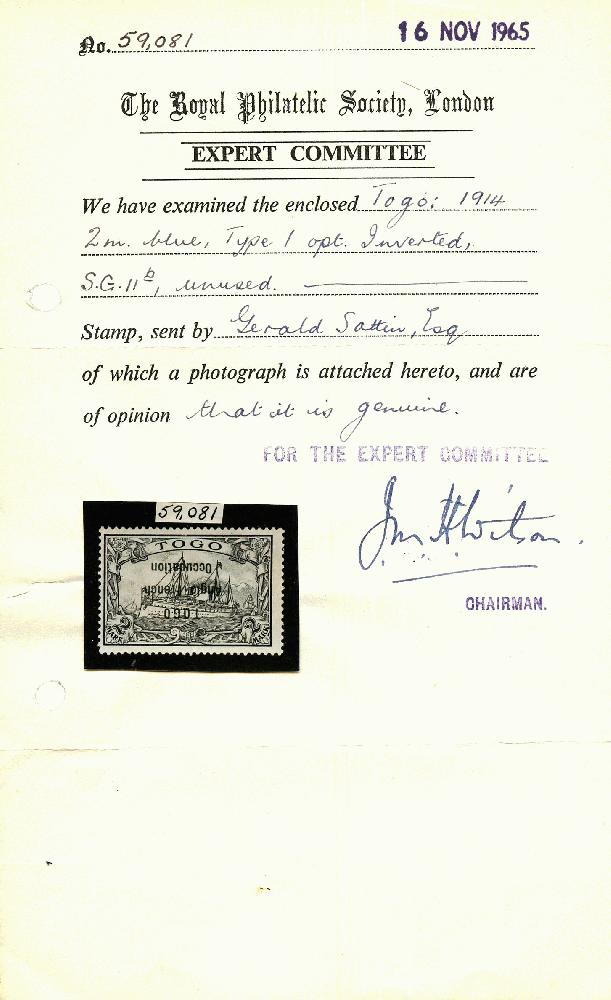 No. 59,081
16 NOV 1965
The Royal Philatelic Society, London
EXPERT COMMITTEE
We have examined the enclosed Togo: 1914
2m. blue, Type 1 opt. Inverted,
S.G. 11b, unused.
Stamp, sent by Gerald Sattin, Esq
of which a photograph is attached hereto, and are
of opinion that it is genuine.
FOR THE EXPERT COMMITTEE
Jn H Wilson.
CHAIRMAN.
59,081
TOGO
Occupation
Anglo-French
TOGO
2 MARK
2 MARK